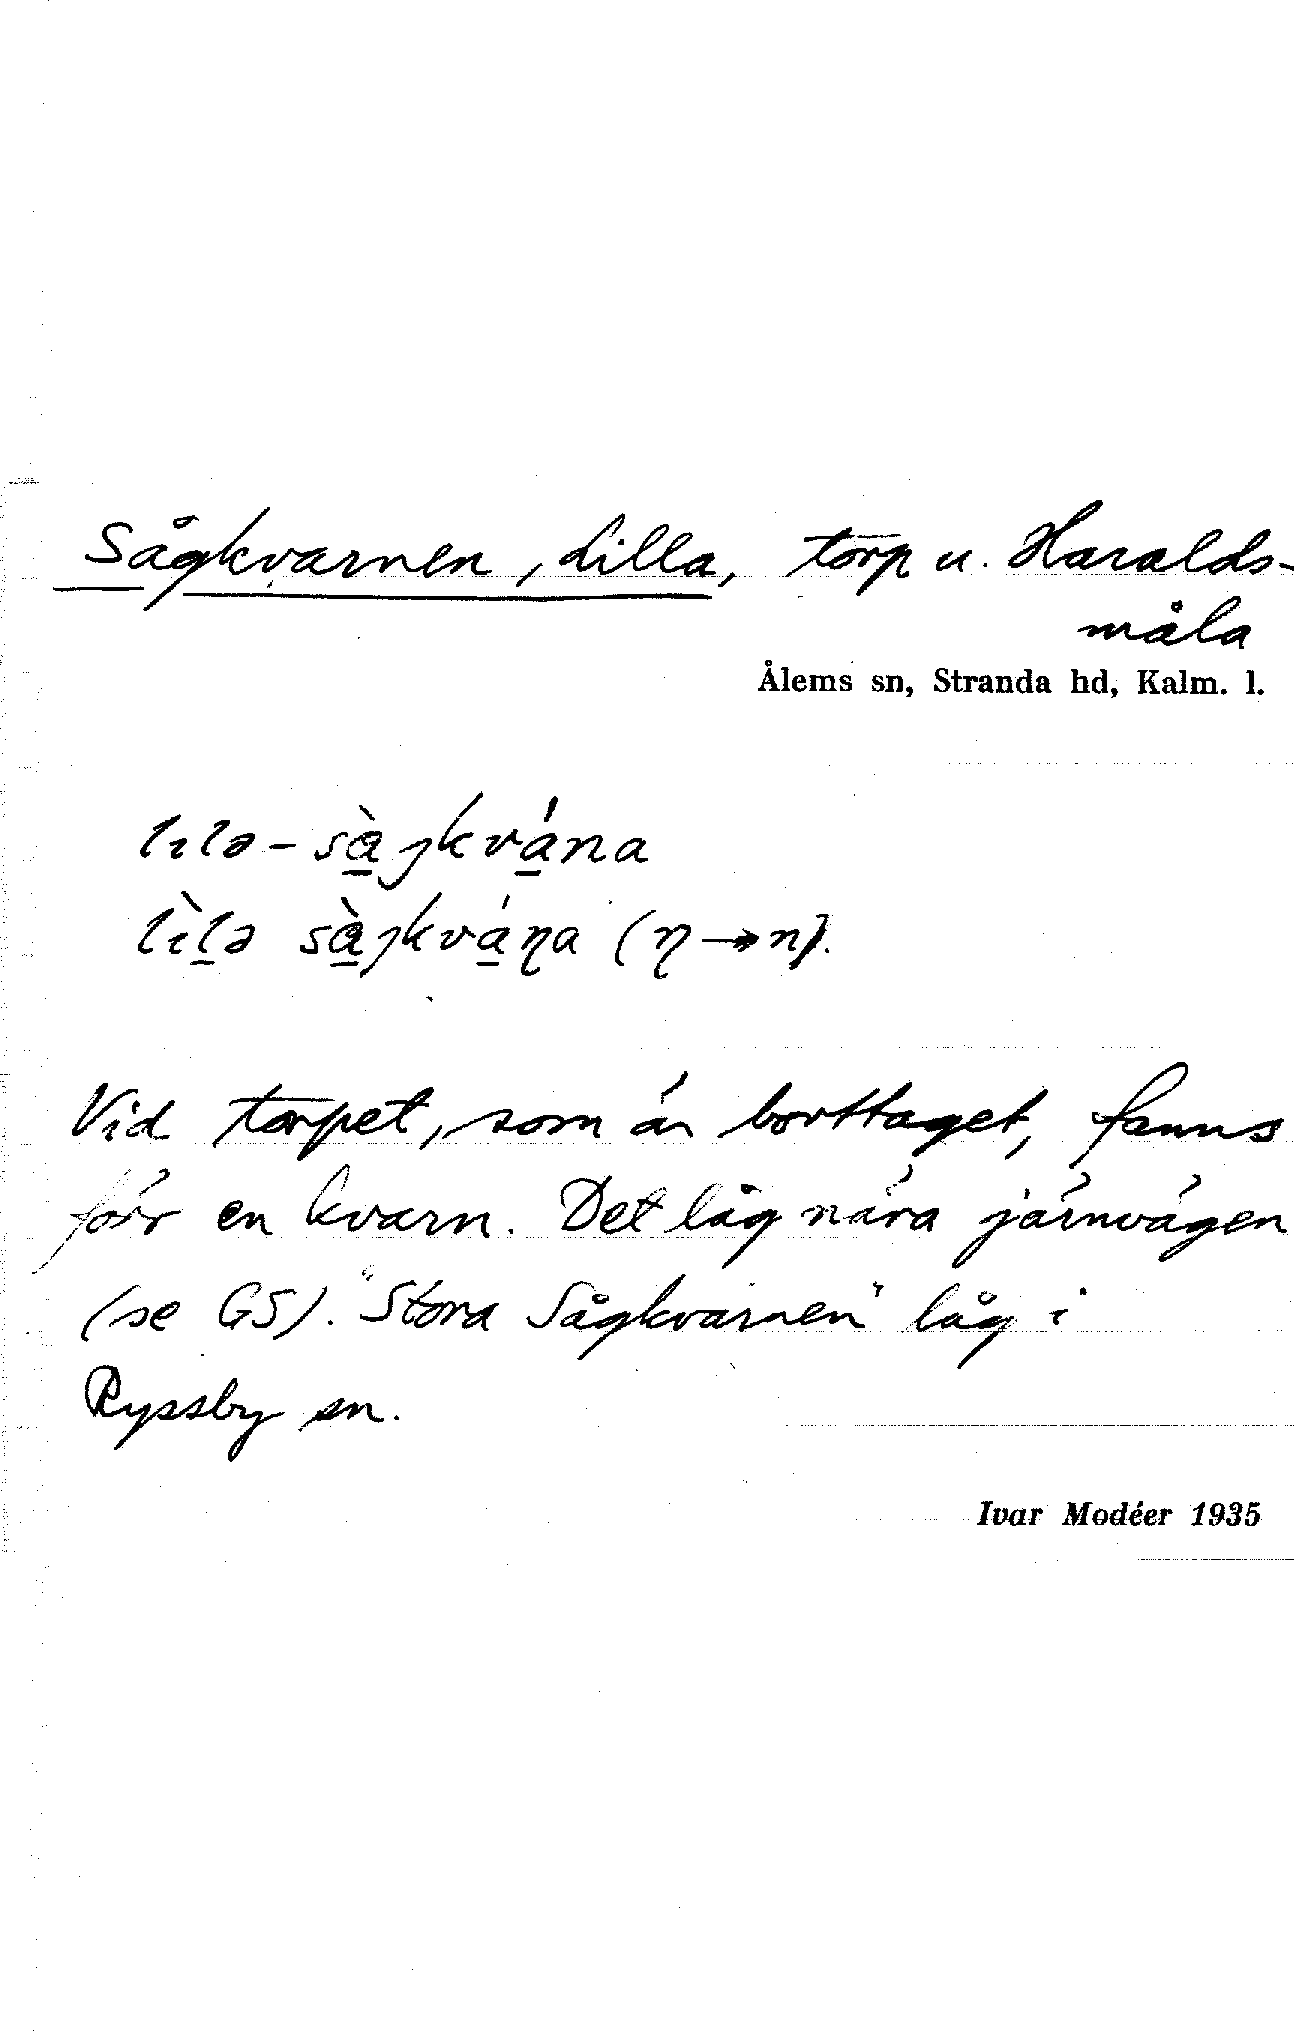 Sågkvarnen, Lilla, torp u. Haralds-
måla
Ålems sn, Stranda hd, Kalm. l.
lılə-sà̱jkvá̱na
lìḻə sà̱jkvá̱ɳa (ɳ→n).
Vid torpet, som är borttaget, fanns
förr en kvarn. Det låg nära järnvägen
(se GS). "Stora Sågkvarnen" låg i
Ryssby sn.
Ivar Modéer 1935